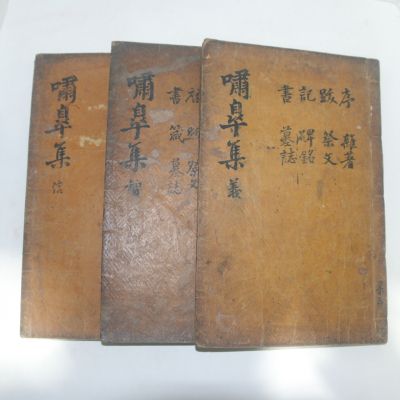 序 雜著
跋 祭文
記 碑銘
書 墓誌
嘯皐集 義
跋 祭文
書 箴 墓誌
嘯皐集 智
嘯皐集 信